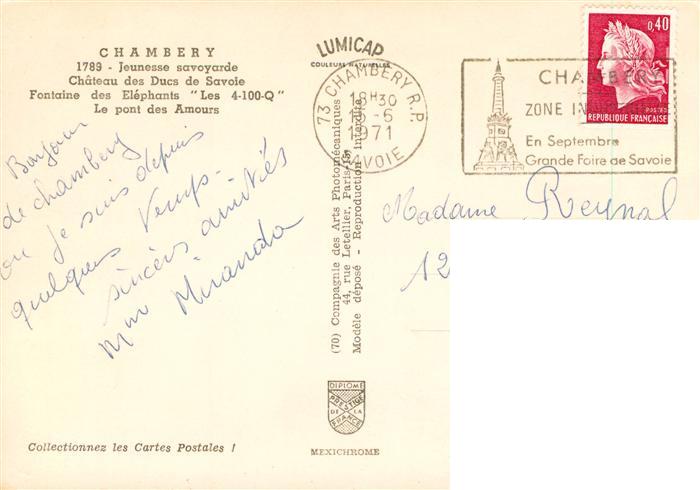 CHAMBERY
1789 - Jeunesse savoyarde
Château des Ducs de Savoie
Fontaine des Eléphants "Les 4-100-Q"
Le pont des Amours
Bonjour
de chambery
ou Je suis depuis
quelques Temps -
sincèrs amitiés
Mme Miranda
Collectionnez les Cartes Postales !
LUMICAP
COULEURS NATURELLES
(70) Compagnie des Arts Photomécaniques
44, rue Letellier, Paris (15)
Modèle déposé - Reproduction interdite
DIPLOME
PRESTIGE
DE LA
FRANCE
MEXICHROME
73 CHAMBERY R.P.
18H30
-6
1971
SAVOIE
CHAMBERY
ZONE
En Septembre
Grande Foire de Savoie
0,40
POSTES
REPUBLIQUE FRANÇAISE
Madame Reynal
12